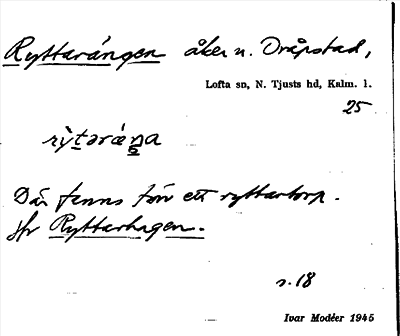 Ryttarängen åker u. Dråpstad,
Lofta sn, N. Tjusts hd, Kalm. l.
25
Där fanns förr ett ryttartorp.
jfr Ryttarhagen.
s. 18
Ivar Modéer 1945